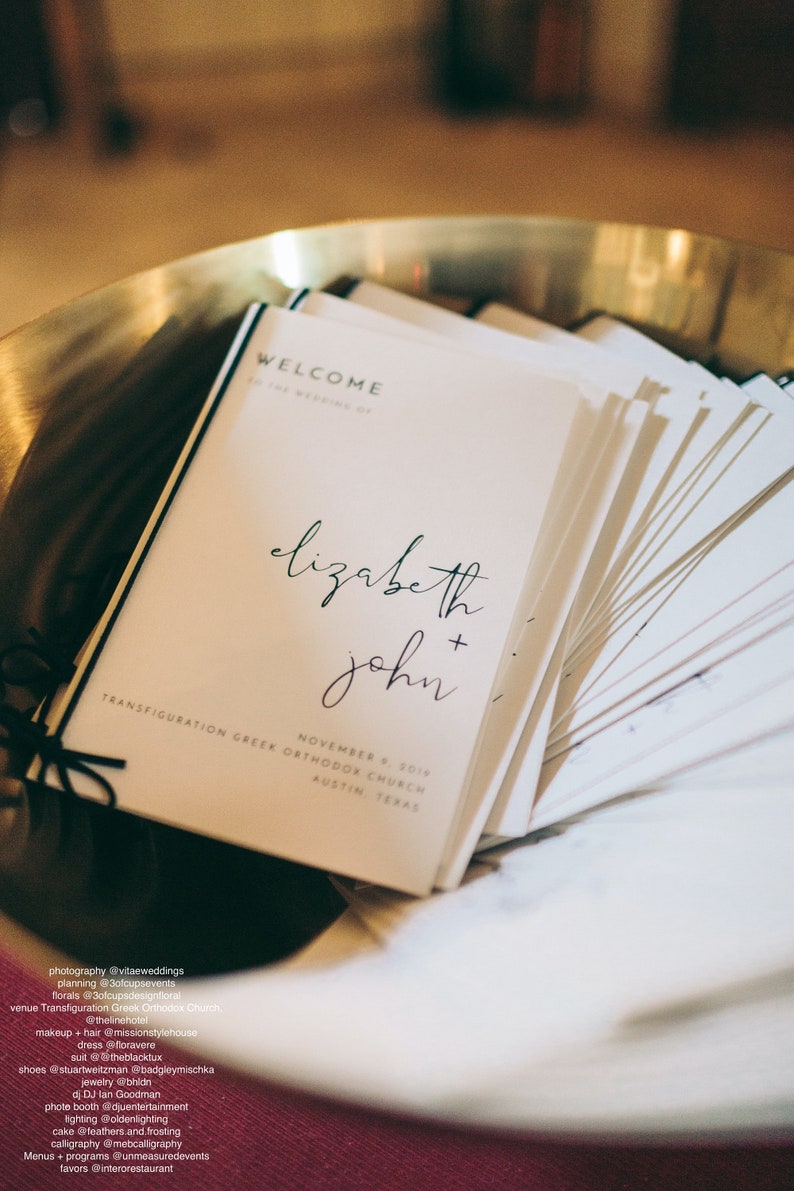 WELCOME
TO THE WEDDING OF
elizabeth
+
john
NOVEMBER 9, 2019
TRANSFIGURATION GREEK ORTHODOX CHURCH
AUSTIN, TEXAS
photography @vitaeweddings
planning @3ofcupsevents
florals @3ofcupsdesignfloral
venue Transfiguration Greek Orthodox Church,
@thelinehotel
makeup + hair @missionstylehouse
dress @floravere
suit @@theblacktux
shoes @stuartweitzman @badgleymischka
jewelry @bhldn
dj DJ Ian Goodman
photo booth @djuentertainment
lighting @oldenlighting
cake @feathers.and.frosting
calligraphy @mebcalligraphy
Menus + programs @unmeasuredevents
favors @interorestaurant